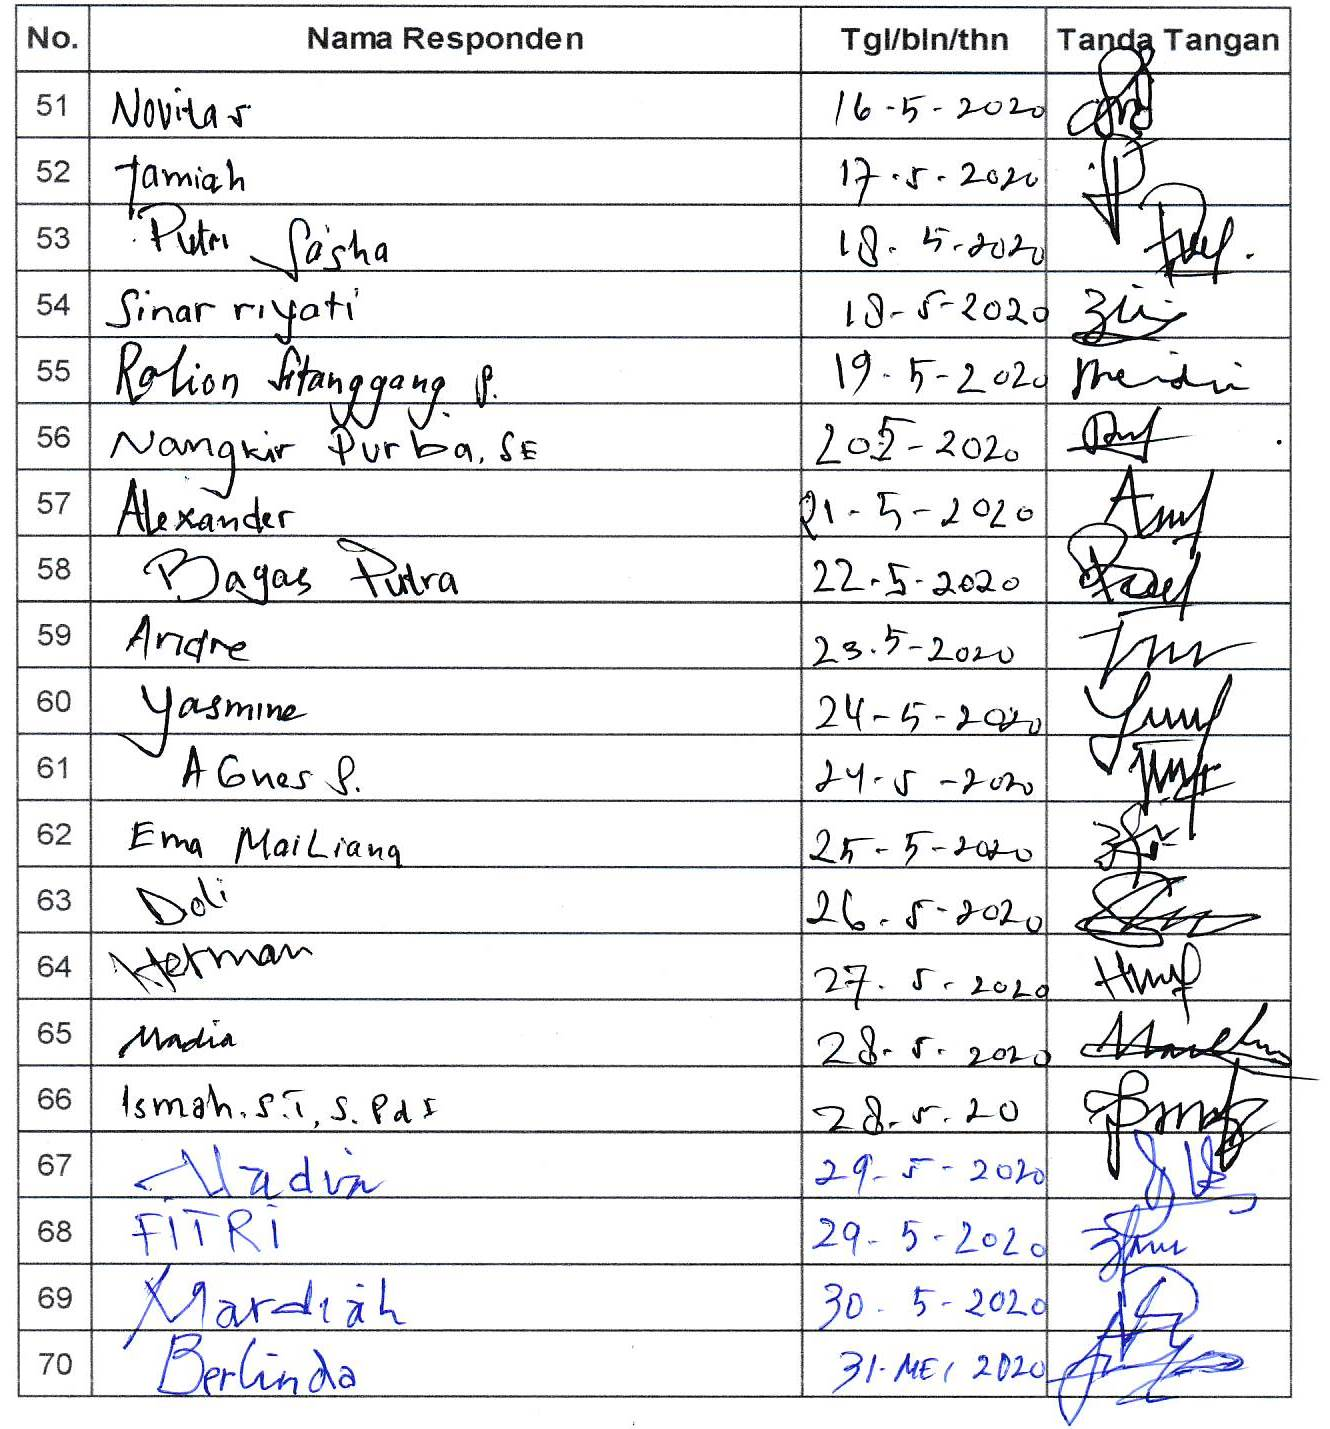 No. Nama Responden Tgl/bln/thn Tanda Tangan
51 Novitas 16-5-2020
52 Jamiah 17-5-2020
53 Putri Sasha 18-5-2020
54 Sinar riyati 18-5-2020
55 Rolion Sitanggang S. 19-5-2020
56 Nangkir Purba, SE 205-2020
57 Alexander 21-5-2020
58 Bagas Putra 22-5-2020
59 Andre 23.5-2020
60 Yasmine 24-5-2020
61 AGnes S. 24-5-2020
62 Erna MaiLiana 25-5-2020
63 Doli 26.5-2020
64 Herman 27.5.2020
65 Nadia 28.5.2020
66 Ismah.S.T, S.PdI 28.5.20
67 Nadia 29-5-2020
68 FITRI 29-5-2020
69 Mardiah 30-5-2020
70 Berlinda 31-MEI 2020